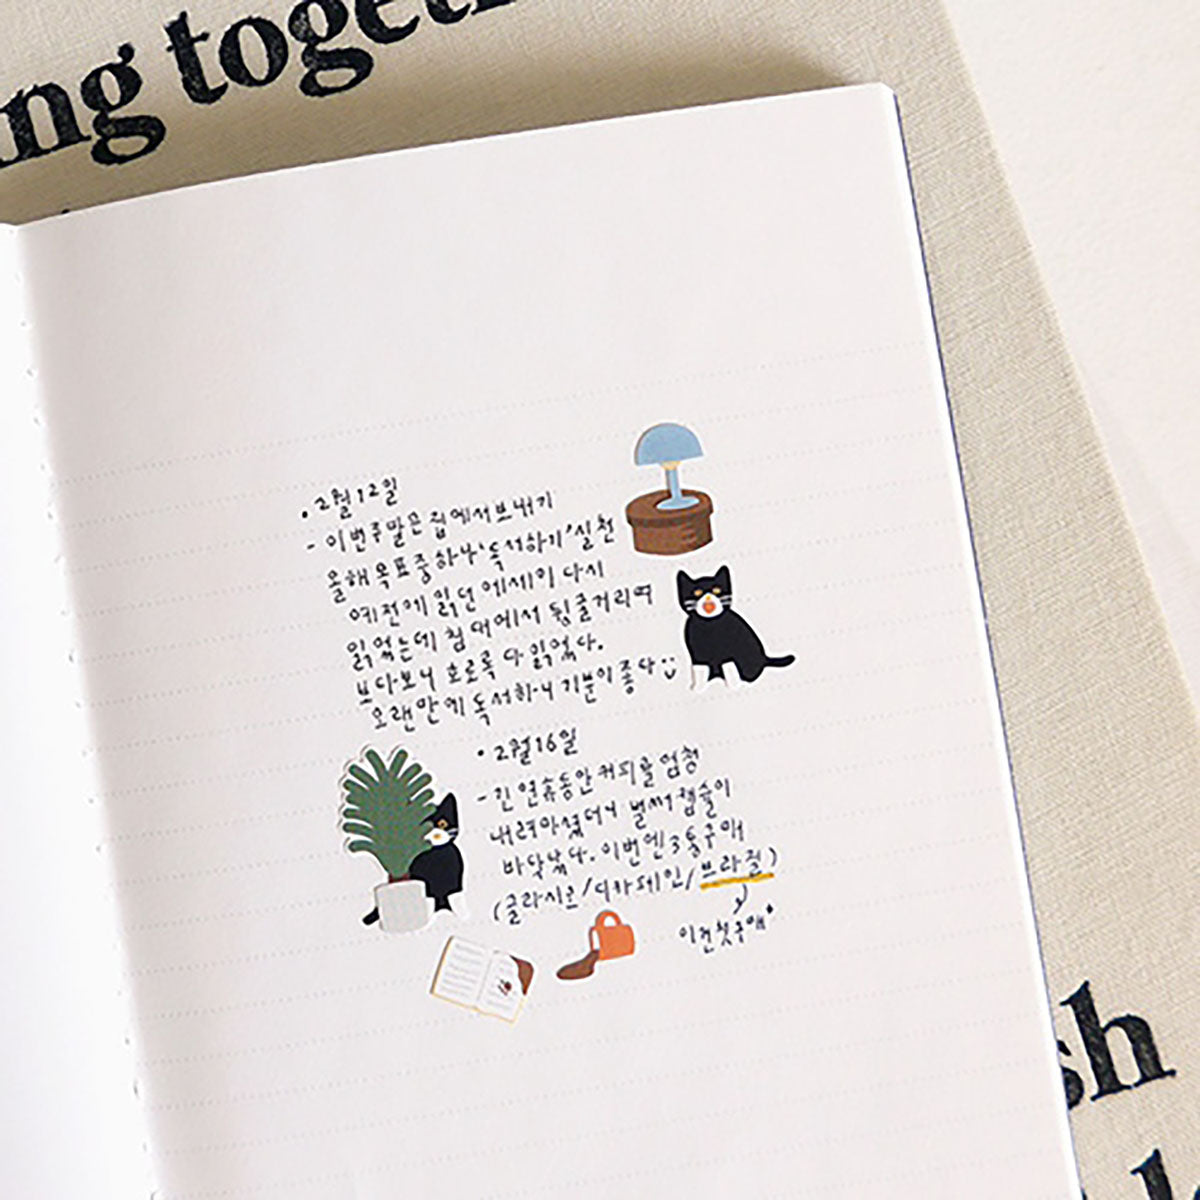 ng togeth
• 2월 12일
- 이번주말은 집에서보내기
올해 목표중하나 '독서하기' 실천
예전에 읽던 에세이 다시
읽었는데 침대에서 뒹굴거리며
보다보니 호로록 다 읽었다.
오랜만에 독서하니 기분이 좋다
• 2월 16일
- 긴 연휴동안 커피를 엄청
내려마셨더니 벌써 캡슐이
바닥났다. 이번엔 3통구매
(클라시코/디카페인/브라질)
이건첫구매
sh